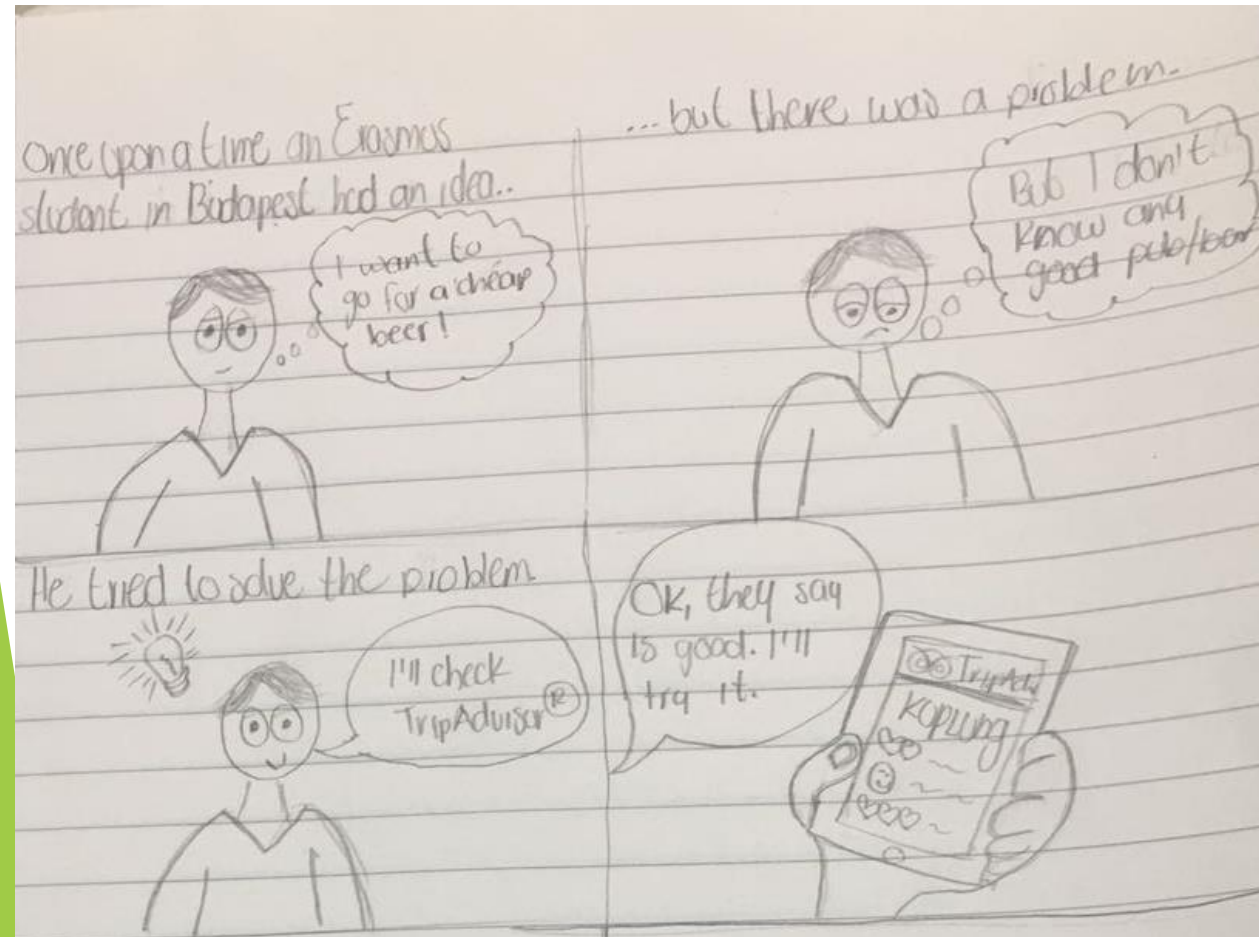 Once upon a time an Erasmus
student in Budapest had an idea..
I want to
go for a cheap
beer!
...but there was a problem.
But I don't
know any
good pub/bar
He tried to solve the problem
I'll check
TripAdvisor®
OK, they say
is good. I'll
try it.
TripAdvi